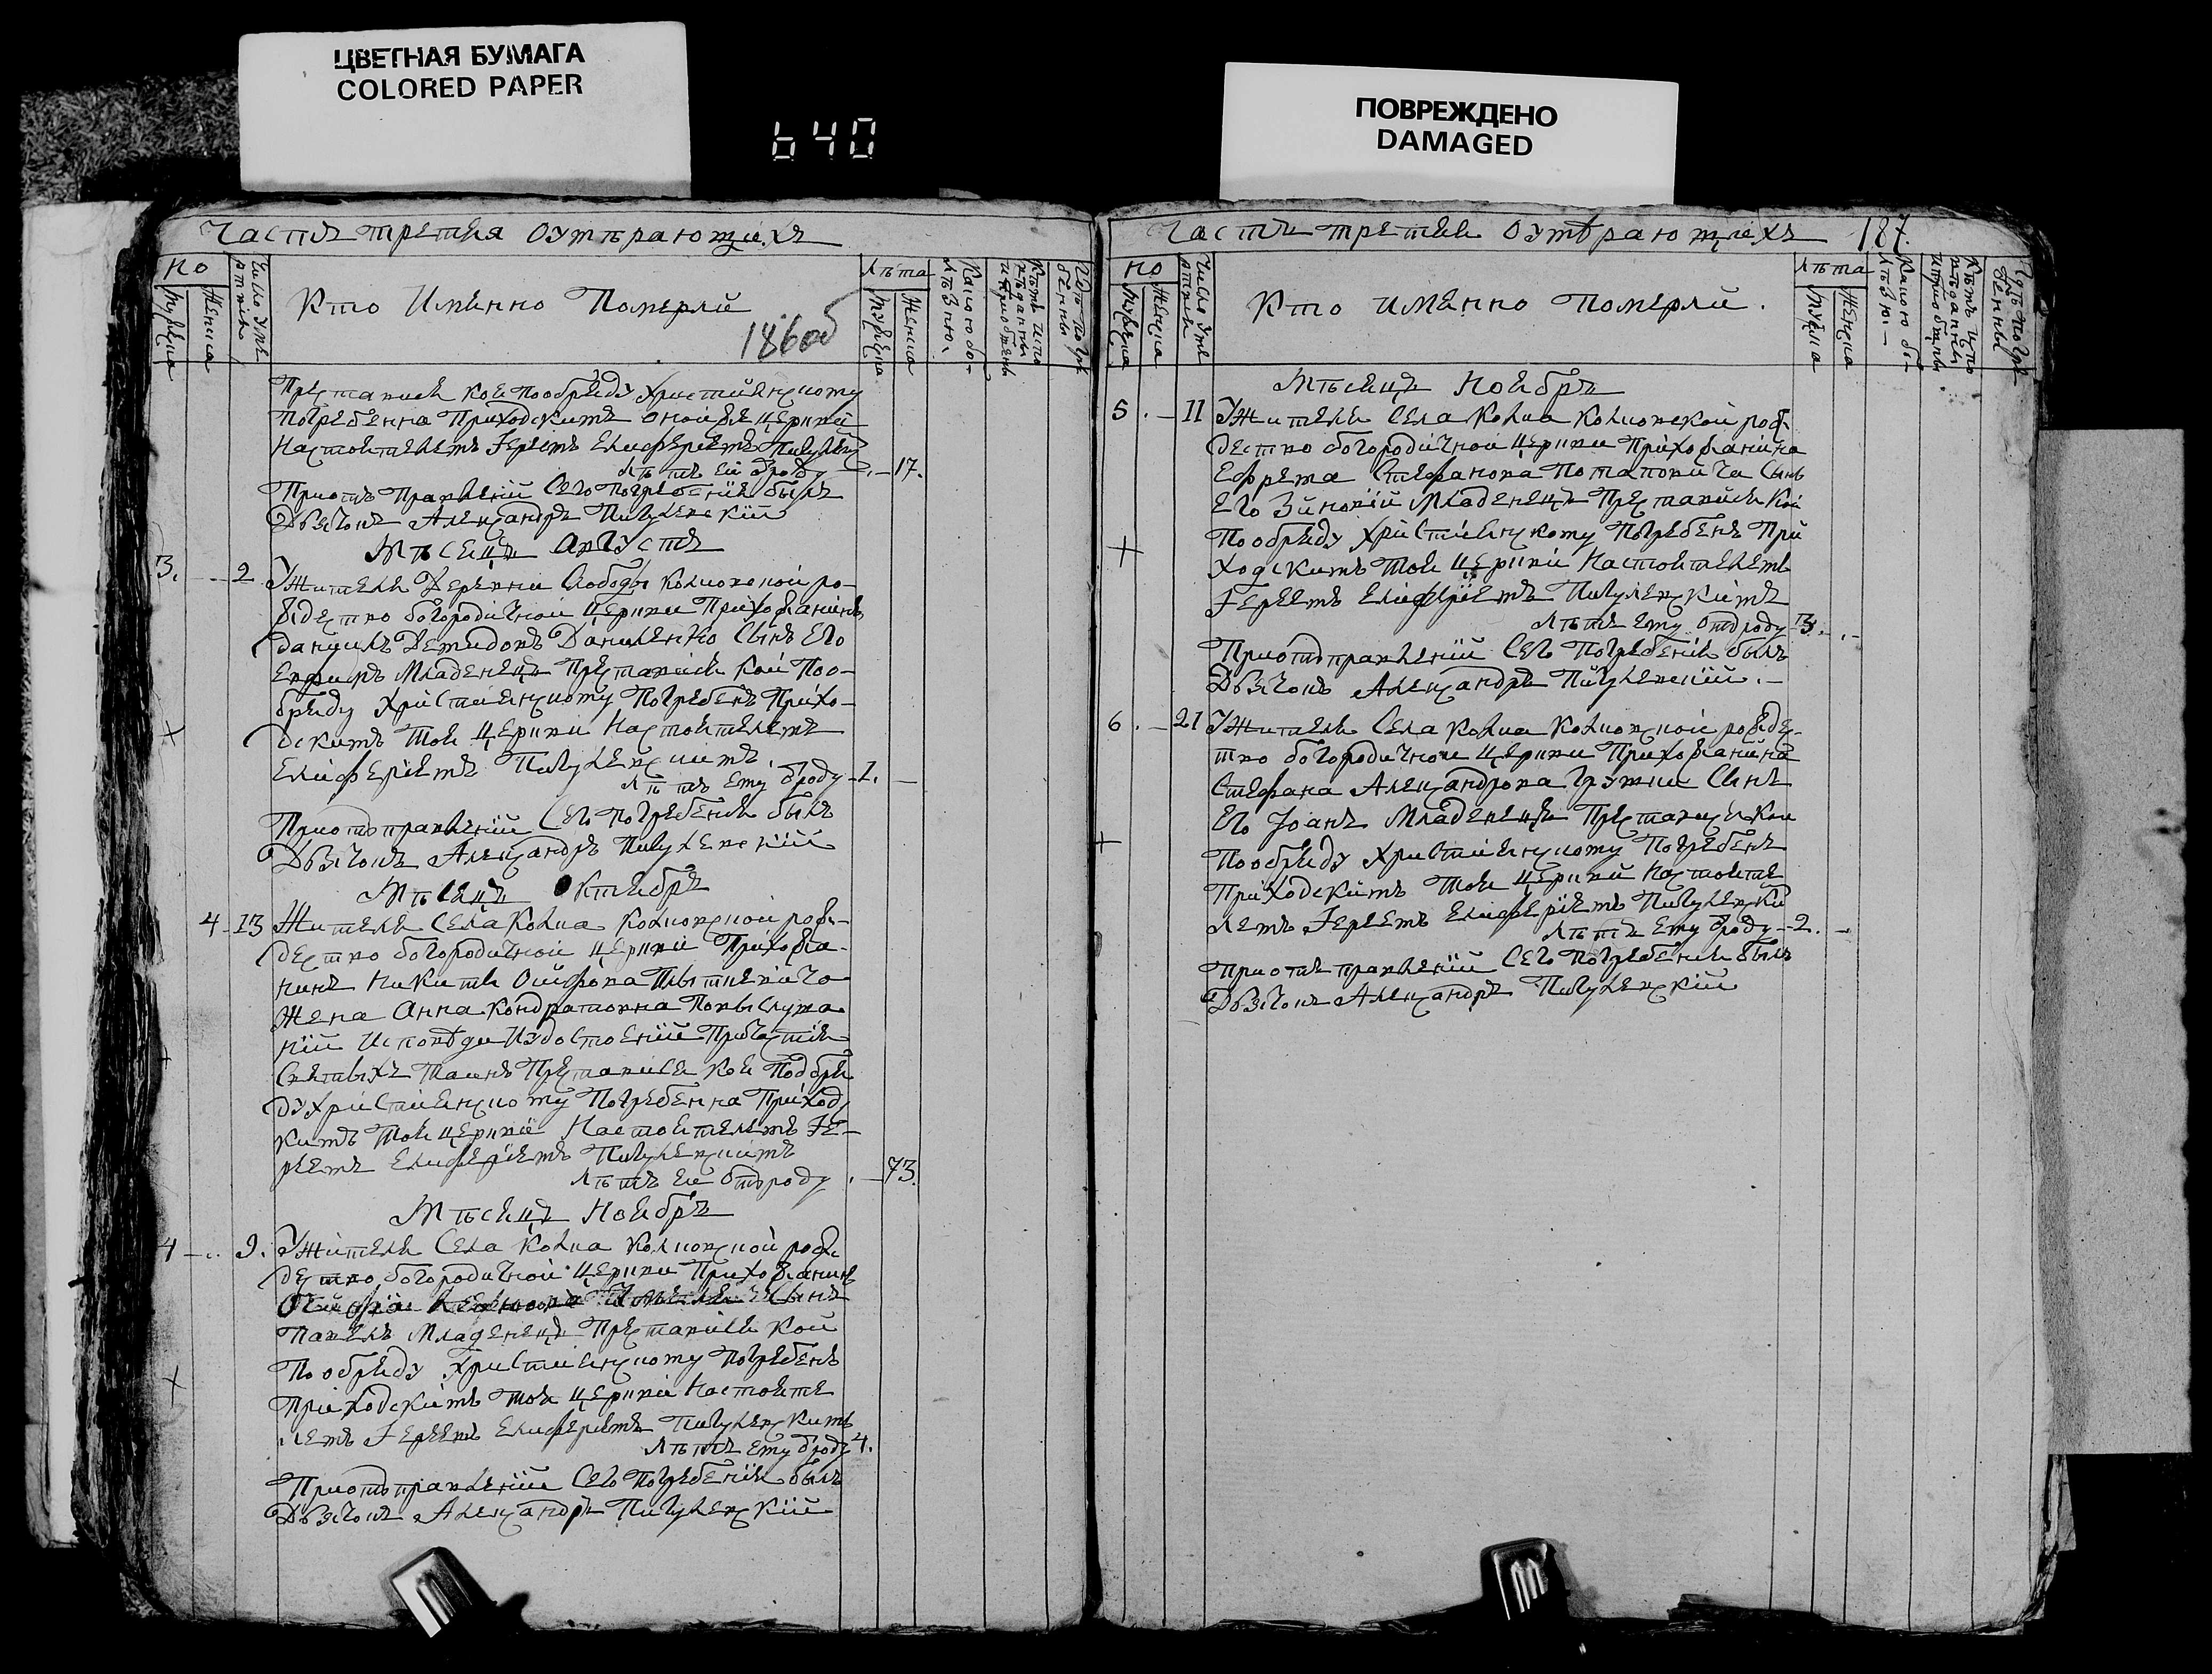 ЦВЕТНАЯ БУМАГА
COLORED PAPER
640
ПОВРЕЖДЕНО
DAMAGED
Часть третия оумѣрающихъ
но
Мужеска
Женска
Число умертвія
Кто Именно Померлй
186об
Лѣта
Мужеска
Женска
Преставися кои пообряду Християнскому
Погребенна Приходскимъ оной же церкви
Настоятелемъ Іереемъ Елиферіемъ
Лѣтъ ей ѿроду 17.
При отправленій Сего Погребенія былъ
Дьячокъ Александръ Пигулевскій
Мѣсяцъ Августъ
3. 2 Жителя Деревни Слободы Колковской ро-
ждество богородичной церкви Прихожанинъ
Данiилъ Демидовъ Даниленко Сынъ Его
Младенецъ Преставися кои Поо-
бряду Християнскому Погребенъ Прихо-
дскимъ Тоя церкви Настоятелемъ
Елиферіемъ Пигулевскимъ
Лѣтъ Ему ѿроду 1.
При отправленій Сего Погребенія былъ
Дьячокъ Александръ Пигулевскій
Мѣсяцъ Октябрь
4 13 Жителя Села Колка Колковской рож-
дество богородичной церкви Прихожа-
нинъ Никита
Жена Анна Кондратовна По выслуша-
ній Исповѣди Удостоеній Причастія
Святыхъ Таинъ Преставися кои Пообря-
ду Християнскому Погребенна Приходс
кимъ Тоя церкви Настоятелемъ Іе-
реемъ Елиферіемъ Пигулевскимъ
Лѣтъ ей Отъроду 73.
Мѣсяцъ Ноябрь
4 9. Жителя Села Колка Колковской рож
дество богородичной церкви Прихожанинъ
Сынъ
Павелъ Младенецъ Преставися кой
Пообряду Християнскому Погребенъ
Приходскимъ тоя церкви Настояте
лемъ Іереемъ Елиферіемъ Пигулевскимъ
Лѣтъ Ему ѿроду 4.
При отправленій Сего Погребенія былъ
Дьячокъ Александръ Пигулевскій
Часть третия Оумѣрающiхъ 187.
но
Мужеска
Женска
Число умертвія
Кто именно Померлй.
Лѣта
Мужеска
Женска
Мѣсяцъ Ноябрь
5. 11 Жителя Села Колка Колковской рож
дество богородичной церкви Прихожанина
Ефрема Стефанова Потаповича Сынъ
Его Зиновій Младенецъ Преставися кой
Пообряду Християнскому Погребенъ При
ходскимъ Тоя церкви Настоятелемъ
Іереемъ Елиферіемъ Пигулевскимъ
Лѣтъ Ему Отъроду 3.
При отправленій Сего Погребенія былъ
Дьячокъ Александръ Пигулевскій.
6. 21 Жителя Села Колка Колковской рождес
тво богородичной церкви Прихожанина
Стефана Александрова Сынъ
Его Іоанъ Младенецъ Преставися кои
Пообряду Християнскому Погребенъ
Приходскимъ Тоя церкви Настояте
лемъ Іереемъ Елиферіемъ Пигулевски
Лѣтъ Ему ѿроду 2.
При отправленій Сего Погребенія былъ
Дьячокъ Александръ Пигулевскій